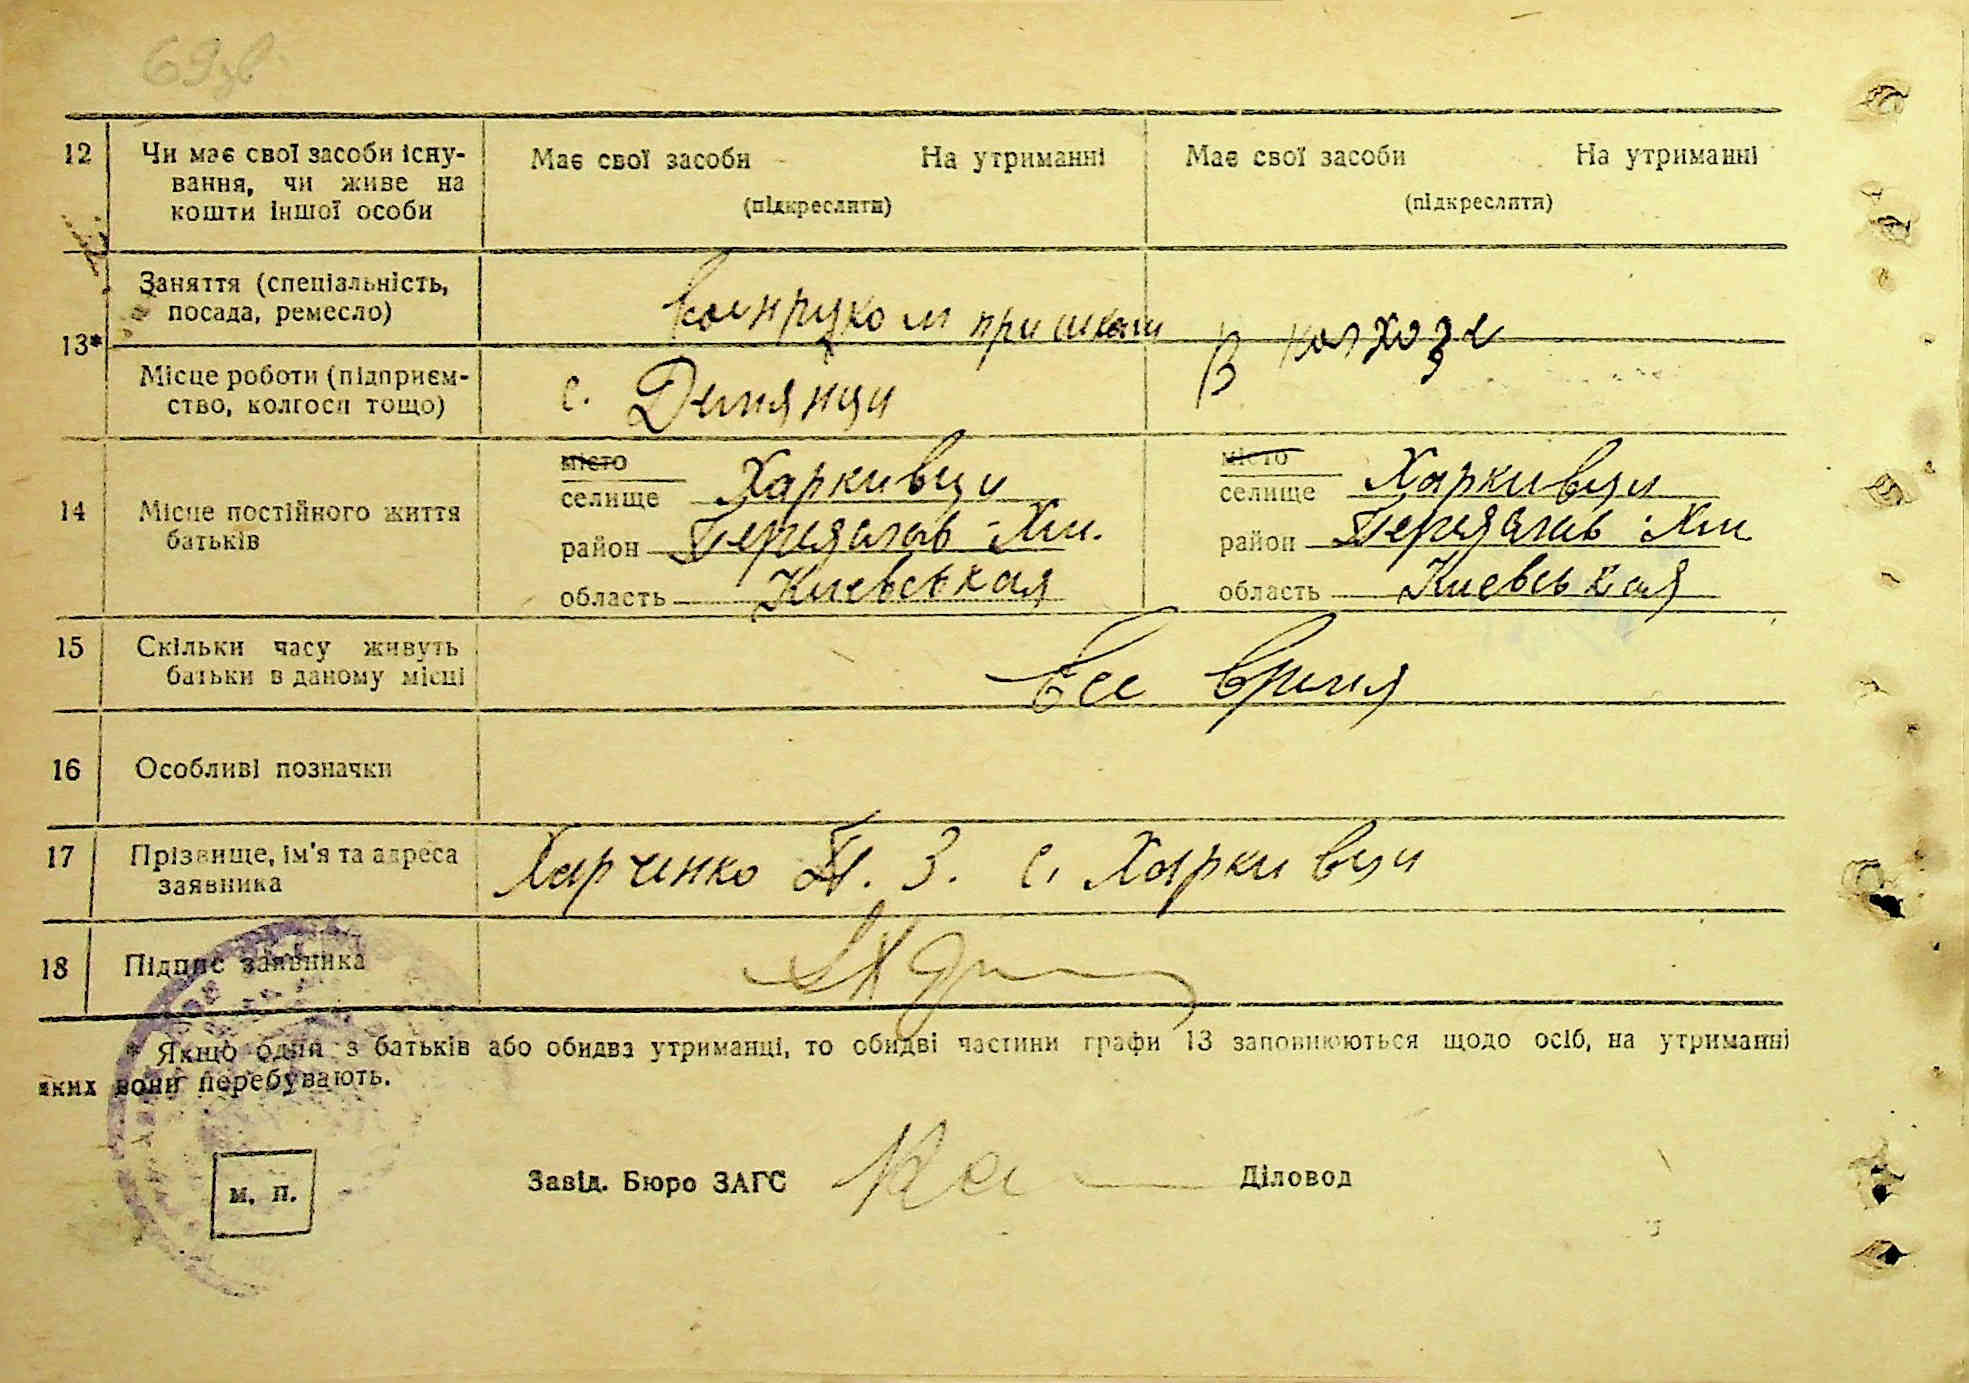 69зв
12 Чи має свої засоби існу-
вання, чи живе на
кошти іншої особи
Має свої засоби На утриманні
(підкреслити)
Має свої засоби На утриманні
(підкреслити)
13*
Заняття (спеціальність,
посада, ремесло)
Военруком при школи
В колхозе
Місце роботи (підприєм-
ство, колгосп тощо)
с. Демянци
14 Місце постійного життя
батьків
місто
селище Харкивци
район Переяслав-Хм.
область Киевськая
місто
селище Харкивци
район Переяслав-Хм
область Киевськая
15 Скільки часу живуть
батьки в даному місці
Все время
16 Особливі позначки
17 Прізвище, ім'я та адреса
заявника
Харченко П. З. с. Харкивци
18 Підпис заявника
* Якщо один з батьків або обидва утриманці, то обидві частини графи 13 заповнюються щодо осіб, на утриманні
яких вони перебувають.
м. п.
Завід. Бюро ЗАГС Діловод